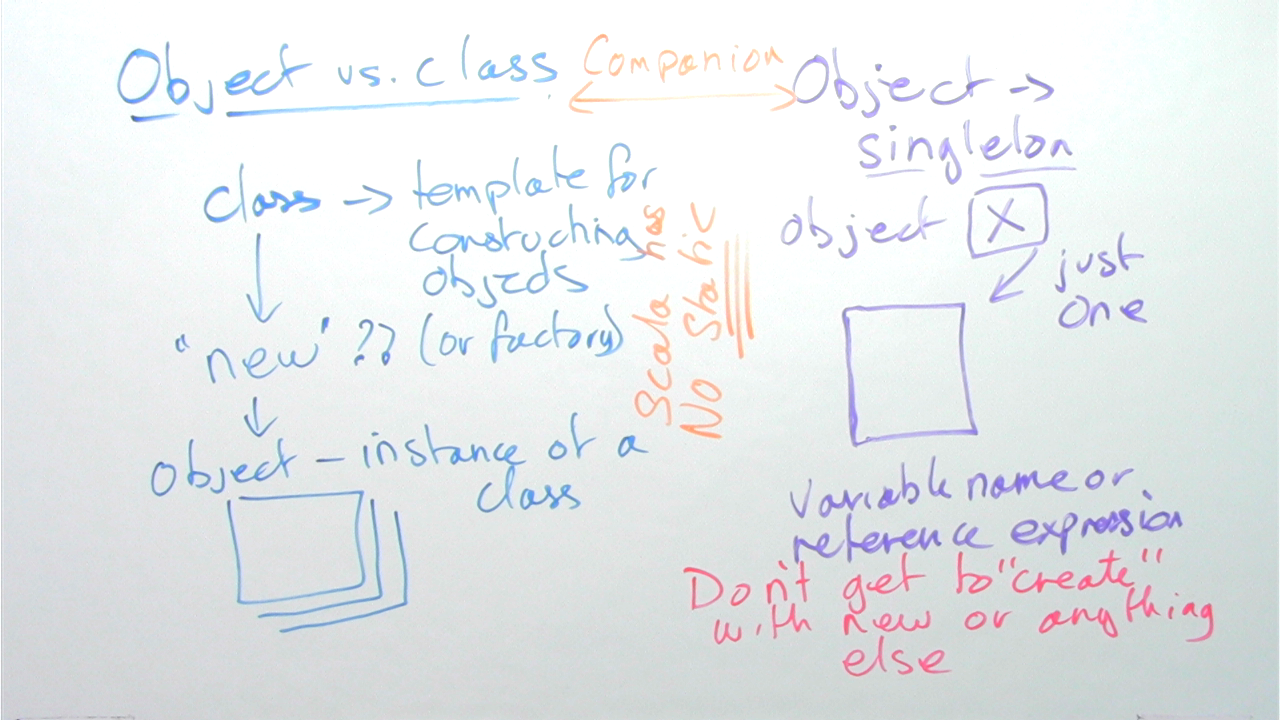 Object vs. class
Companion
class -> template for
constuching
objeds
"new" ?? (or factory)
Object - instance of a
class
Scala has
No Static
Object ->
singleton
object X
just
one
Variable name or
reference expression
Don't get to "create"
with new or anything
else